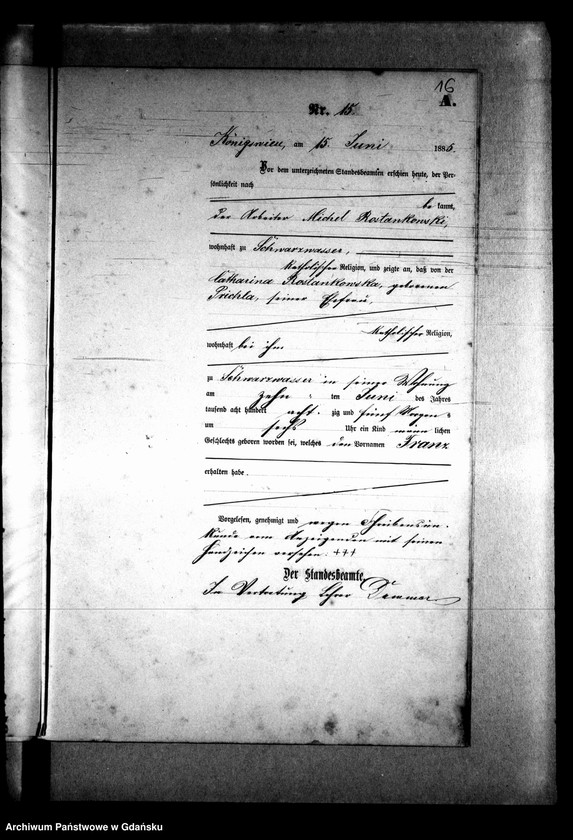 16
A.
Nr. 15
Königswiese, am 15. Juni 1885.
Vor dem unterzeichneten Standesbeamten erschien heute, der Per-
sönlichkeit nach
be kannt,
der Arbeiter Michel Rostankowski,
wohnhaft zu Schwarzwasser,
katholischer Religion, und zeigte an, daß von der
Catharina Rostankowska, geborenen
Prichla, seiner Ehefrau,
katholischer Religion,
wohnhaft bei ihm
zu Schwarzwasser in seiner Wohnung
am zehn ten Juni des Jahres
tausend acht hundert acht zig und fünf Morgens
um sechs Uhr ein Kind männ lichen
Geschlechts geboren worden sei, welches den Vornamen Franz
erhalten habe.
Vorgelesen, genehmigt und wegen Schreibensun-
kunde vom Anzeigenden mit seinem
Handzeichen versehen. +++
Der Standesbeamte.
In Vertretung Lehrer
Archiwum Państwowe w Gdańsku